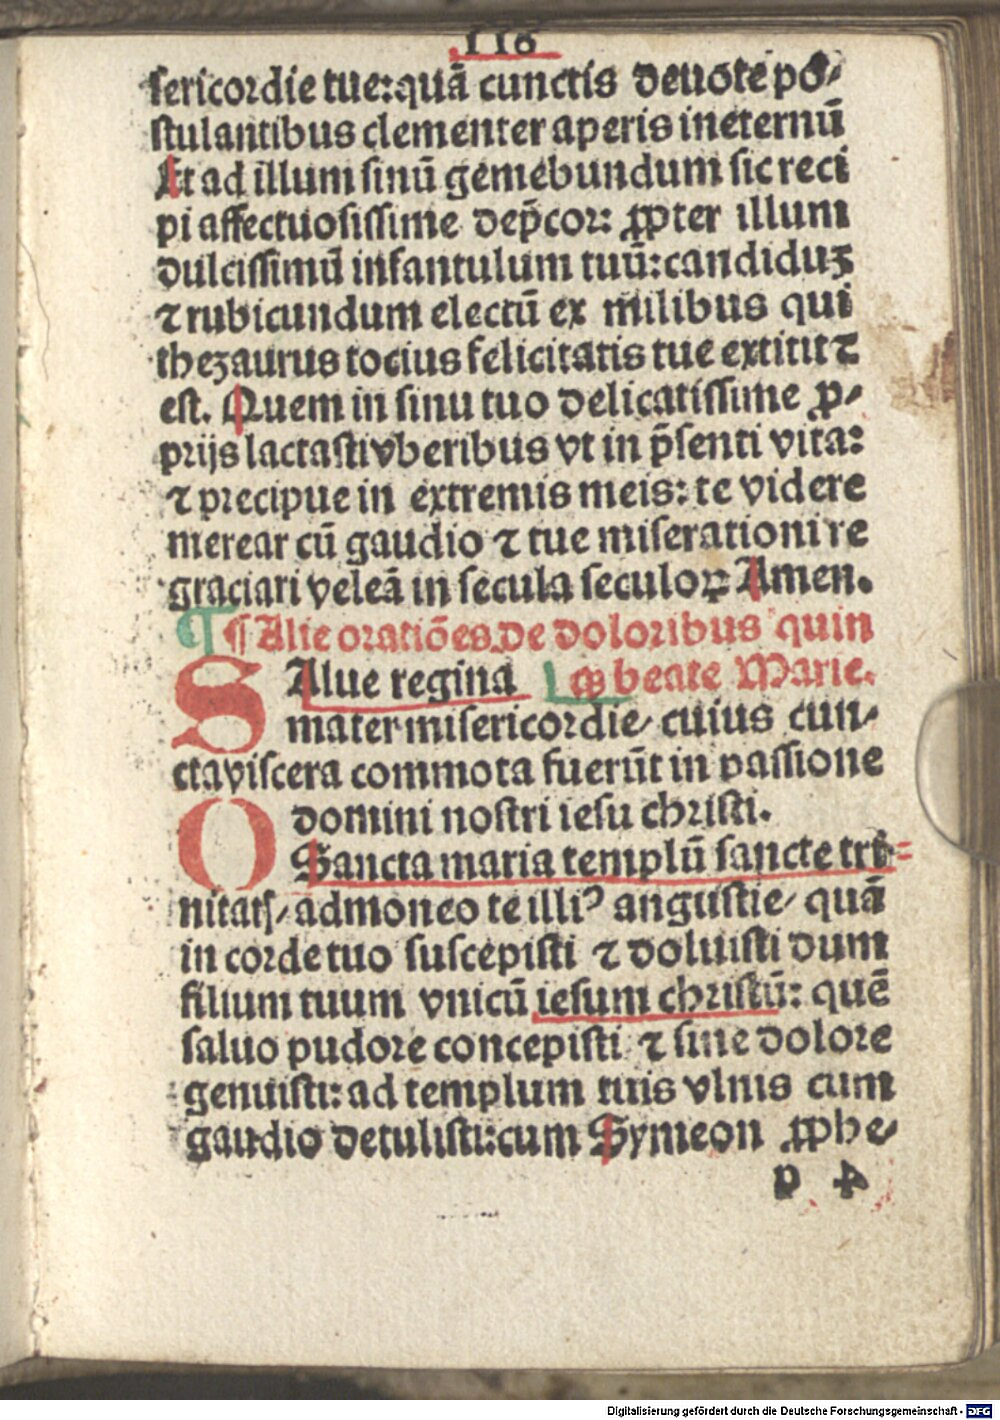 116
sericordie tue: quā cunctis deuote po⸗
stulantibus clementer aperis ineternū
Et ad illum sinū gemebundum sic reci
pi affectuosissime dep̄cor: ꝓpter illum
dulcissimū infantulum tuū: candiduꝫ
⁊ rubicundum electū ex milibus qui
thezaurus tocius felicitatis tue extitit ⁊
est. Quem in sinu tuo delicatissime ꝓ⸗
prijs lactasti vberibus vt in p̄senti vita:
⁊ precipue in extremis meis: te videre
merear cū gaudio ⁊ tue miserationi re
graciari veleā in secula seculoꝝ Amen.
¶ Alie oratiōes de doloribus quin
SAlue regina qꝫ beate Marie.
mater misericordie/ cuius cun⸗
cta viscera commota fuerūt in passione
domini nostri iesu christi.
O Sancta maria templū sancte tri=
nitatꝭ/ admoneo te illiꝰ angustie/ quā
in corde tuo suscepisti ⁊ doluisti dum
filium tuum vnicū iesum christū: quē
saluo pudore concepisti ⁊ sine dolore
genuisti: ad templum tuis vlnis cum
gaudio detulisti: cum Symeon ꝓphe⸗
p 4
Digitalisierung gefördert durch die Deutsche Forschungsgemeinschaft - DFG